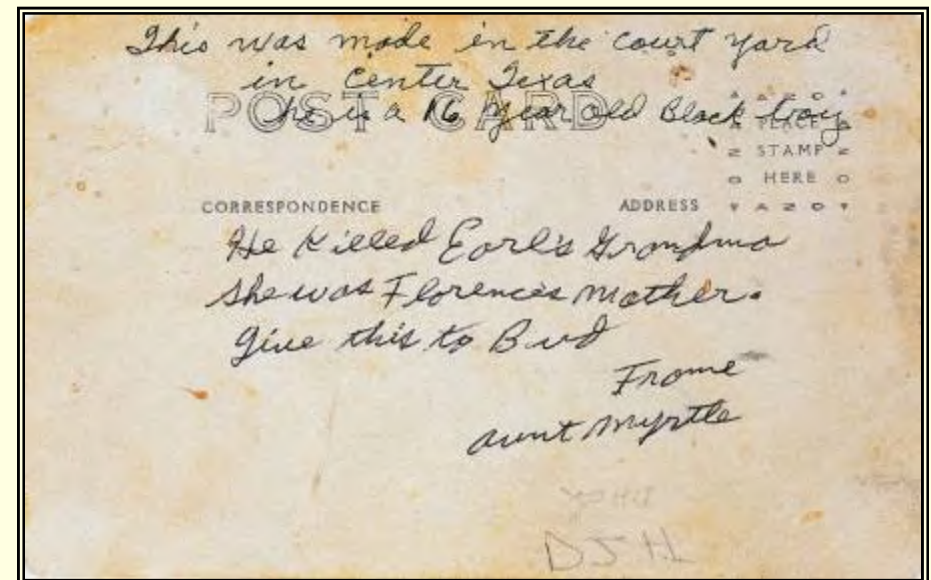 This was made in the court yard
in Center Texas
he is a 16 year old Black boy
POST CARD
PLACE
STAMP
HERE
AZO
CORRESPONDENCE
ADDRESS
He Killed Earl's Grandma
She was Florence's Mother.
Give this to Bud
Frome
Aunt Myrtle
DJH